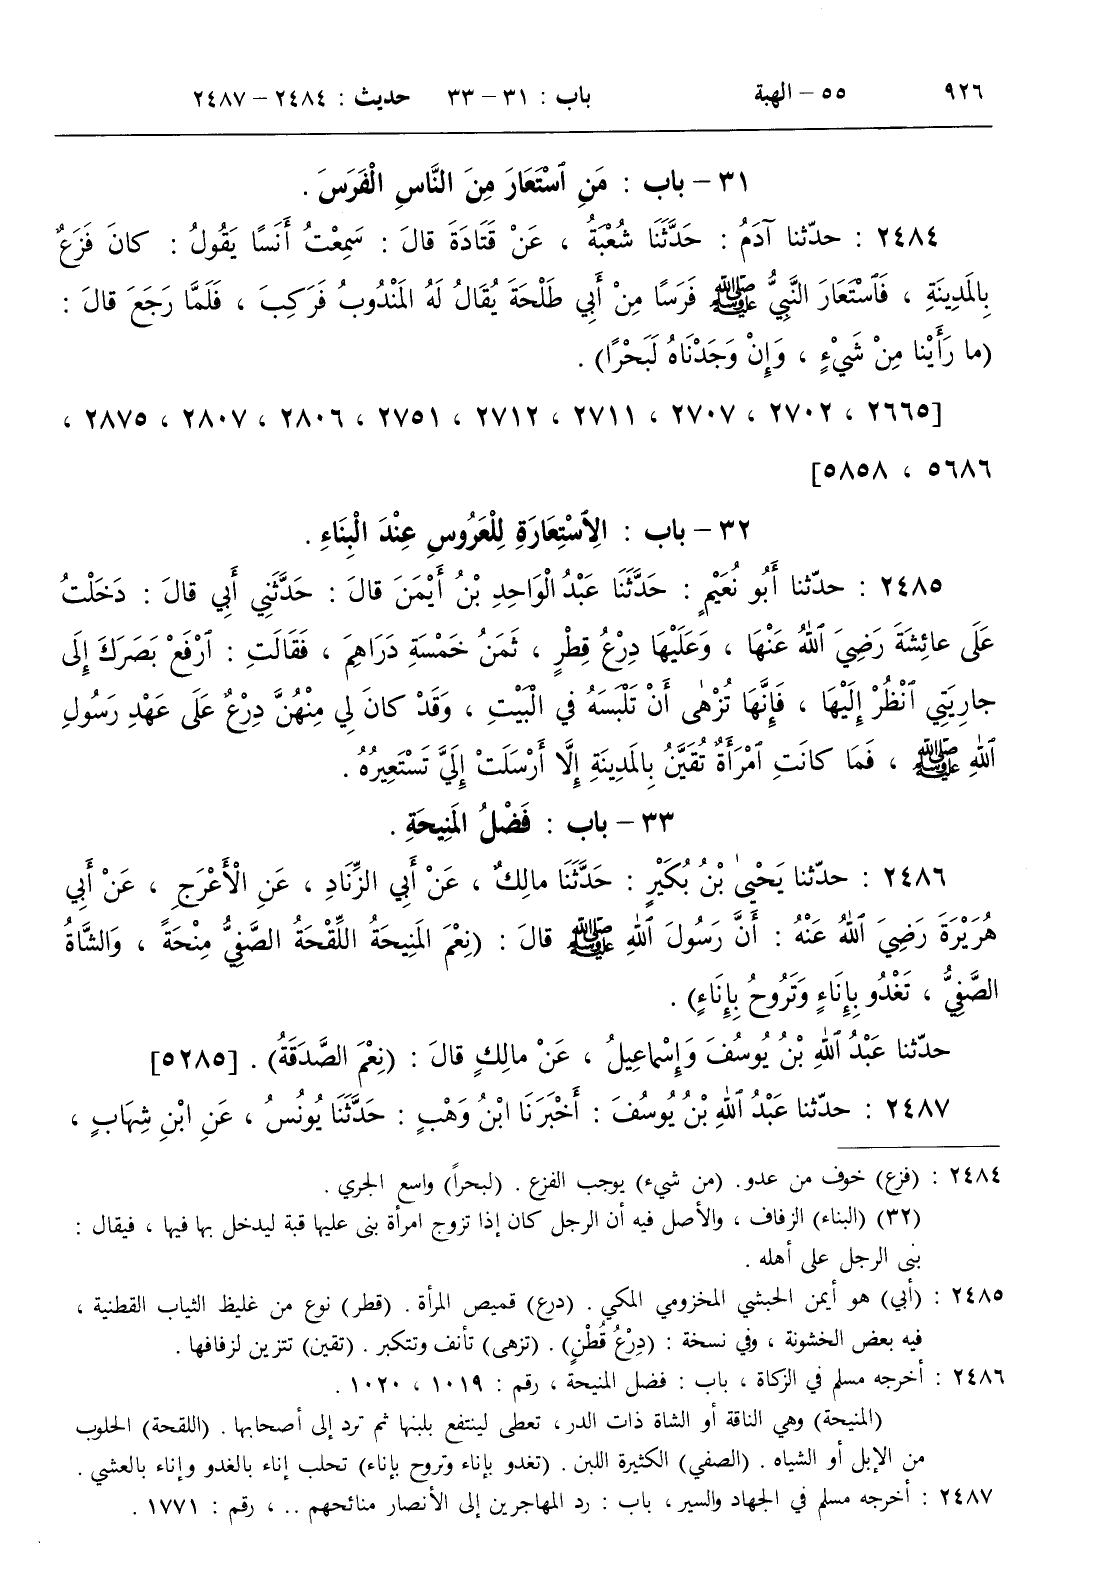 ٩٢٦ ٥٥ – الهبة باب : ٣١ – ٣٣ حديث : ٢٤٨٤ – ٢٤٨٧
٣١ – باب : مَنِ ٱسْتَعَارَ مِنَ النَّاسِ الْفَرَسَ .
٢٤٨٤ : حدّثنا آدَمُ : حَدَّثَنَا شُعْبَةُ ، عَنْ قَتَادَةَ قالَ : سَمِعْتُ أَنَسًا يَقُولُ : كانَ فَزَعٌ
بِالمَدِينَةِ ، فَٱسْتَعَارَ النَّبِيُّ ﷺ فَرَسًا مِنْ أَبِي طَلْحَةَ يُقَالُ لَهُ المَنْدُوبُ فَرَكِبَ ، فَلَمَّا رَجَعَ قالَ :
(ما رَأَيْنا مِنْ شَيْءٍ ، وَإِنْ وَجَدْنَاهُ لَبَحْرًا) .
[٢٦٦٥ ، ٢٧٠٢ ، ٢٧٠٧ ، ٢٧١١ ، ٢٧١٢ ، ٢٧٥١ ، ٢٨٠٦ ، ٢٨٠٧ ، ٢٨٧٥ ،
٥٦٨٦ ، ٥٨٥٨]
٣٢ – باب : الِٱسْتِعَارَةِ لِلْعَرُوسِ عِنْدَ الْبِنَاءِ .
٢٤٨٥ : حدّثنا أَبُو نُعَيْمٍ : حَدَّثَنَا عَبْدُ الْوَاحِدِ بْنُ أَيْمَنَ قالَ : حَدَّثَنِي أَبِي قالَ : دَخَلْتُ
عَلَى عائِشَةَ رَضِيَ ٱللهُ عَنْهَا ، وَعَلَيْهَا دِرْعُ قِطْرٍ ، ثَمَنُ خَمْسَةِ دَرَاهِمَ ، فَقَالَتِ : ٱرْفَعْ بَصَرَكَ إِلَى
جارِيَتِي ٱنْظُرْ إِلَيْهَا ، فَإِنَّهَا تُزْهٰى أَنْ تَلْبَسَهُ فِي الْبَيْتِ ، وَقَدْ كانَ لِي مِنْهُنَّ دِرْعٌ عَلَى عَهْدِ رَسُولِ
ٱللهِ ﷺ ، فَمَا كانَتِ ٱمْرَأَةٌ تُقَيَّنُ بِالمَدِينَةِ إِلَّا أَرْسَلَتْ إِلَيَّ تَسْتَعِيرُهُ .
٣٣ – باب : فَضْلُ المَنِيحَةِ .
٢٤٨٦ : حدّثنا يَحْيىٰ بْنُ بُكَيْرٍ : حَدَّثَنَا مالِكٌ ، عَنْ أَبِي الزِّنَادِ ، عَنِ الْأَعْرَجِ ، عَنْ أَبِي
هُرَيْرَةَ رَضِيَ ٱللهُ عَنْهُ : أَنَّ رَسُولَ ٱللهِ ﷺ قالَ : (نِعْمَ المَنِيحَةُ اللِّقْحَةُ الصَّفِيُّ مِنْحَةً ، وَالشَّاةُ
الصَّفِيُّ ، تَغْدُو بِإِنَاءٍ وَتَرُوحُ بِإِنَاءٍ) .
حدّثنا عَبْدُ ٱللهِ بْنُ يُوسُفَ وَإِسْماعِيلُ ، عَنْ مالِكٍ قالَ : (نِعْمَ الصَّدَقَةُ) . [٥٢٨٥]
٢٤٨٧ : حدّثنا عَبْدُ ٱللهِ بْنُ يُوسُفَ : أَخْبَرَنَا ابْنُ وَهْبٍ : حَدَّثَنَا يُونُسُ ، عَنِ ابْنِ شِهَابٍ ،
٢٤٨٤ : (فزع) خوف من عدو. (من شيء) يوجب الفزع . (لبحراً) واسع الجري .
(٣٢) (البناء) الزفاف ، والأصل فيه أن الرجل كان إذا تزوج امرأة بنى عليها قبة ليدخل بها فيها ، فيقال :
بنى الرجل على أهله .
٢٤٨٥ : (أبي) هو أيمن الحبشي المخزومي المكي . (درع) قميص المرأة . (قطر) نوع من غليظ الثياب القطنية ،
فيه بعض الخشونة ، وفي نسخة : (دِرْعُ قُطْنٍ) . (تزهى) تأنف وتتكبر . (تقين) تتزين لزفافها .
٢٤٨٦ : أخرجه مسلم في الزكاة ، باب : فضل المنيحة ، رقم : ١٠١٩ ، ١٠٢٠ .
(المنيحة) وهي الناقة أو الشاة ذات الدر ، تعطى لينتفع بلبنها ثم ترد إلى أصحابها . (اللقحة) الحلوب
من الإبل أو الشياه . (الصفي) الكثيرة اللبن . (تغدو بإناء وتروح بإناء) تحلب إناء بالغدو وإناء بالعشي .
٢٤٨٧ : أخرجه مسلم في الجهاد والسير ، باب : رد المهاجرين إلى الأنصار منائحهم .. ، رقم : ١٧٧١ .